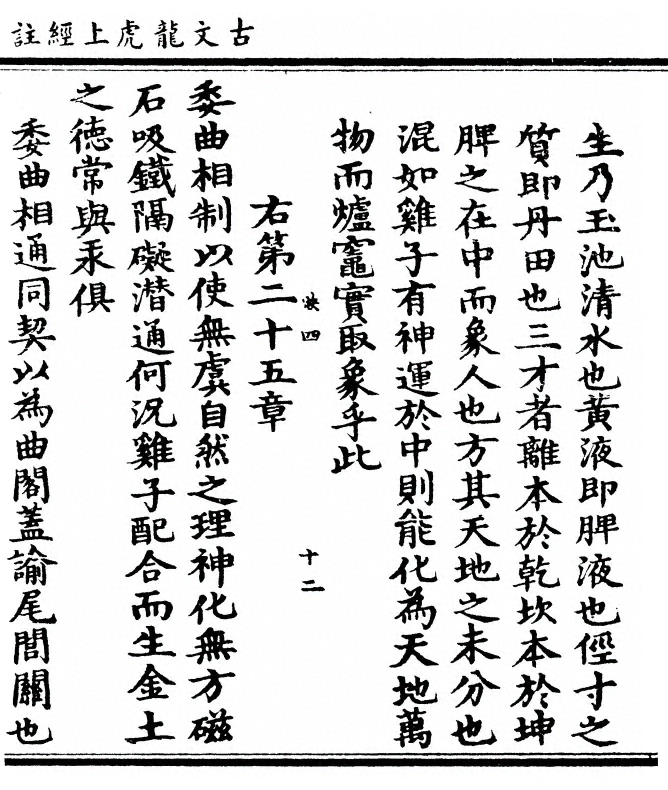 古文龍虎上經註
生乃玉池清水也黃液即脾液也徑寸之
質即丹田也三才者離本於乾坎本於坤
脾之在中而象人也方其天地之未分也
混如雞子有神運於中則能化為天地萬
物而爐竈實取象乎此
右第二十五章
映四
十二
委曲相制以使無虞自然之理神化無方磁
石吸鐵隔礙潛通何況雞子配合而生金土
之德常與汞俱
委曲相通同契以為曲閣蓋諭尾閭關也